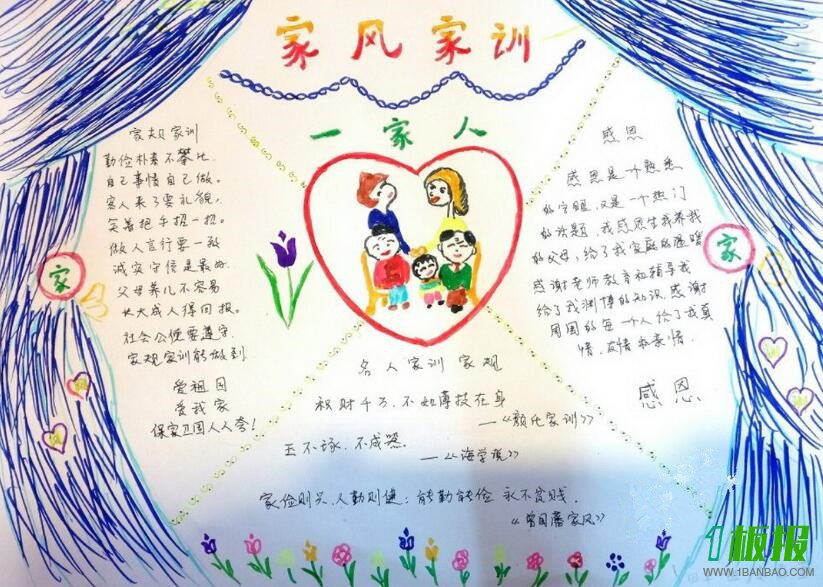 家风家训
一家人
家规家训
勤俭朴素不攀比
自己事情自己做。
客人来了要礼貌,
笑着把手招一招。
做人言行要一致
诚实守信是最好.
父母养儿不容易
长大成人得回报。
社会公德要遵守
家规家训能做到
爱祖国
爱我家
保家卫国人人夸!
家
训
感恩
感恩是一个熟悉
的字眼,又是一个热门
的话题,我感恩生我养我
的父母,给了我家庭的温暖
感谢老师教育和指导我
给了我渊博的知识.感谢
周围的每一个人给了我真
情,友情和亲情.
感恩
家
训
名人家训家规
积财千万,不如薄技在身
—《颜氏家训》
玉不琢,不成器.
—《诲学说》
家俭则兴,人勤则健;能勤能俭 永不贫贱.
《曾国藩家风》
1板报
WWW.1BANBAO.COM